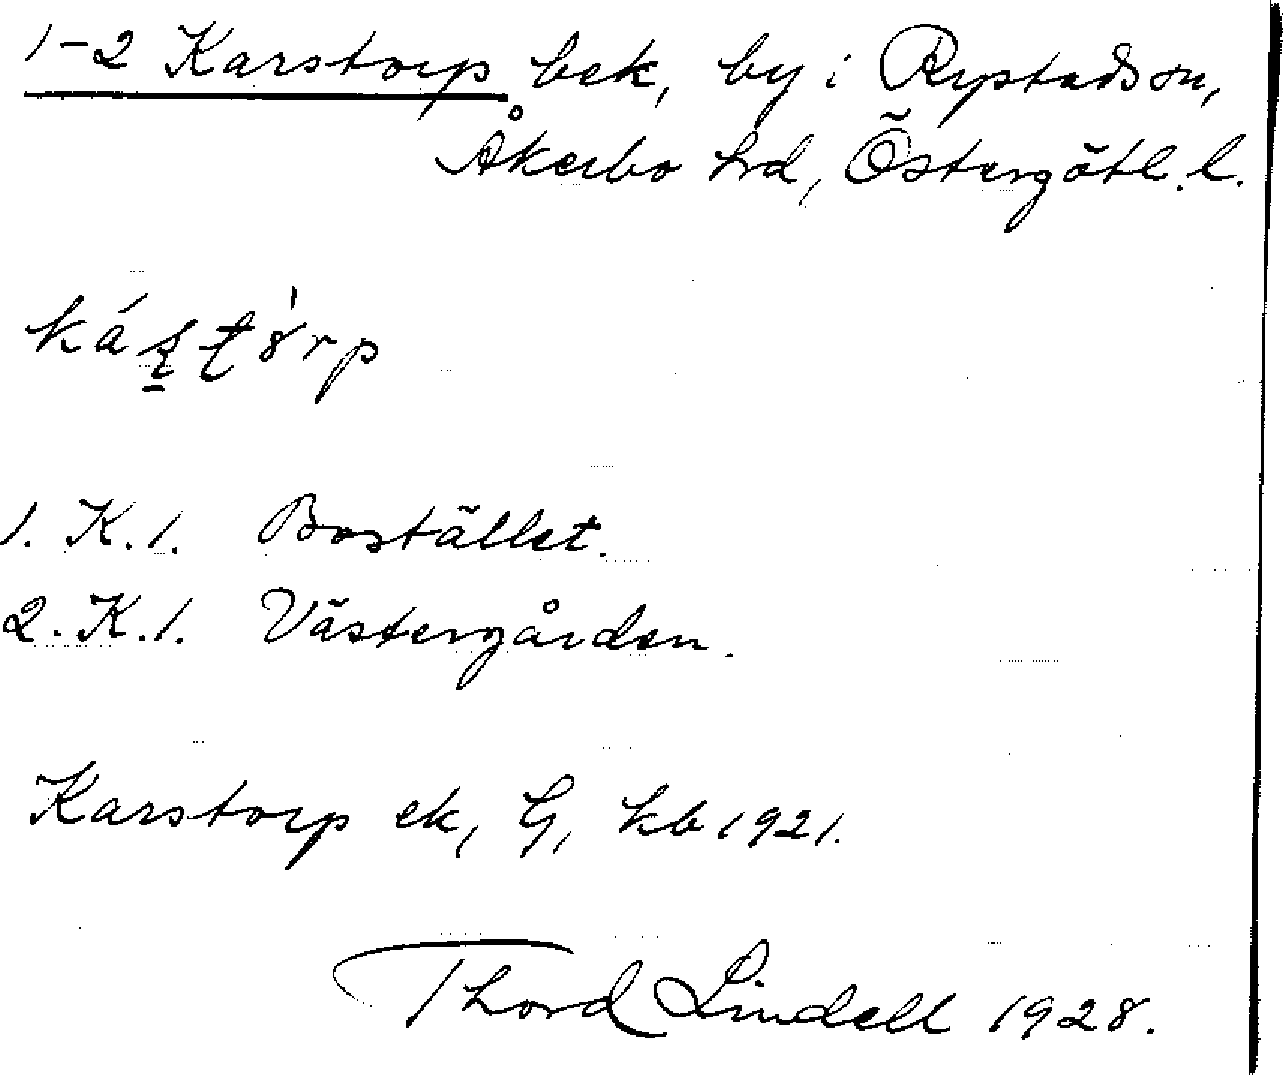 1-2 Karstorp bek, by i Rystads sn,
Åkerbo hrd, Östergötl. l.
1. K. 1. Bostället.
2. K. 1. Västergården.
Karstorp ek, G, kb 1921.
Thord Lindell 1928.